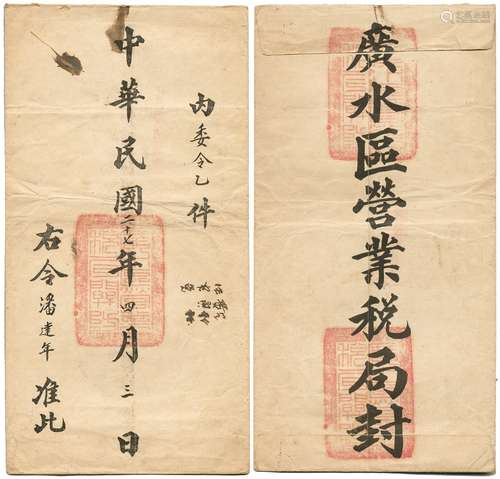 內委令乙件
中華民國二十七年四月三日
右令潘達年准此
廣水區營業稅局封